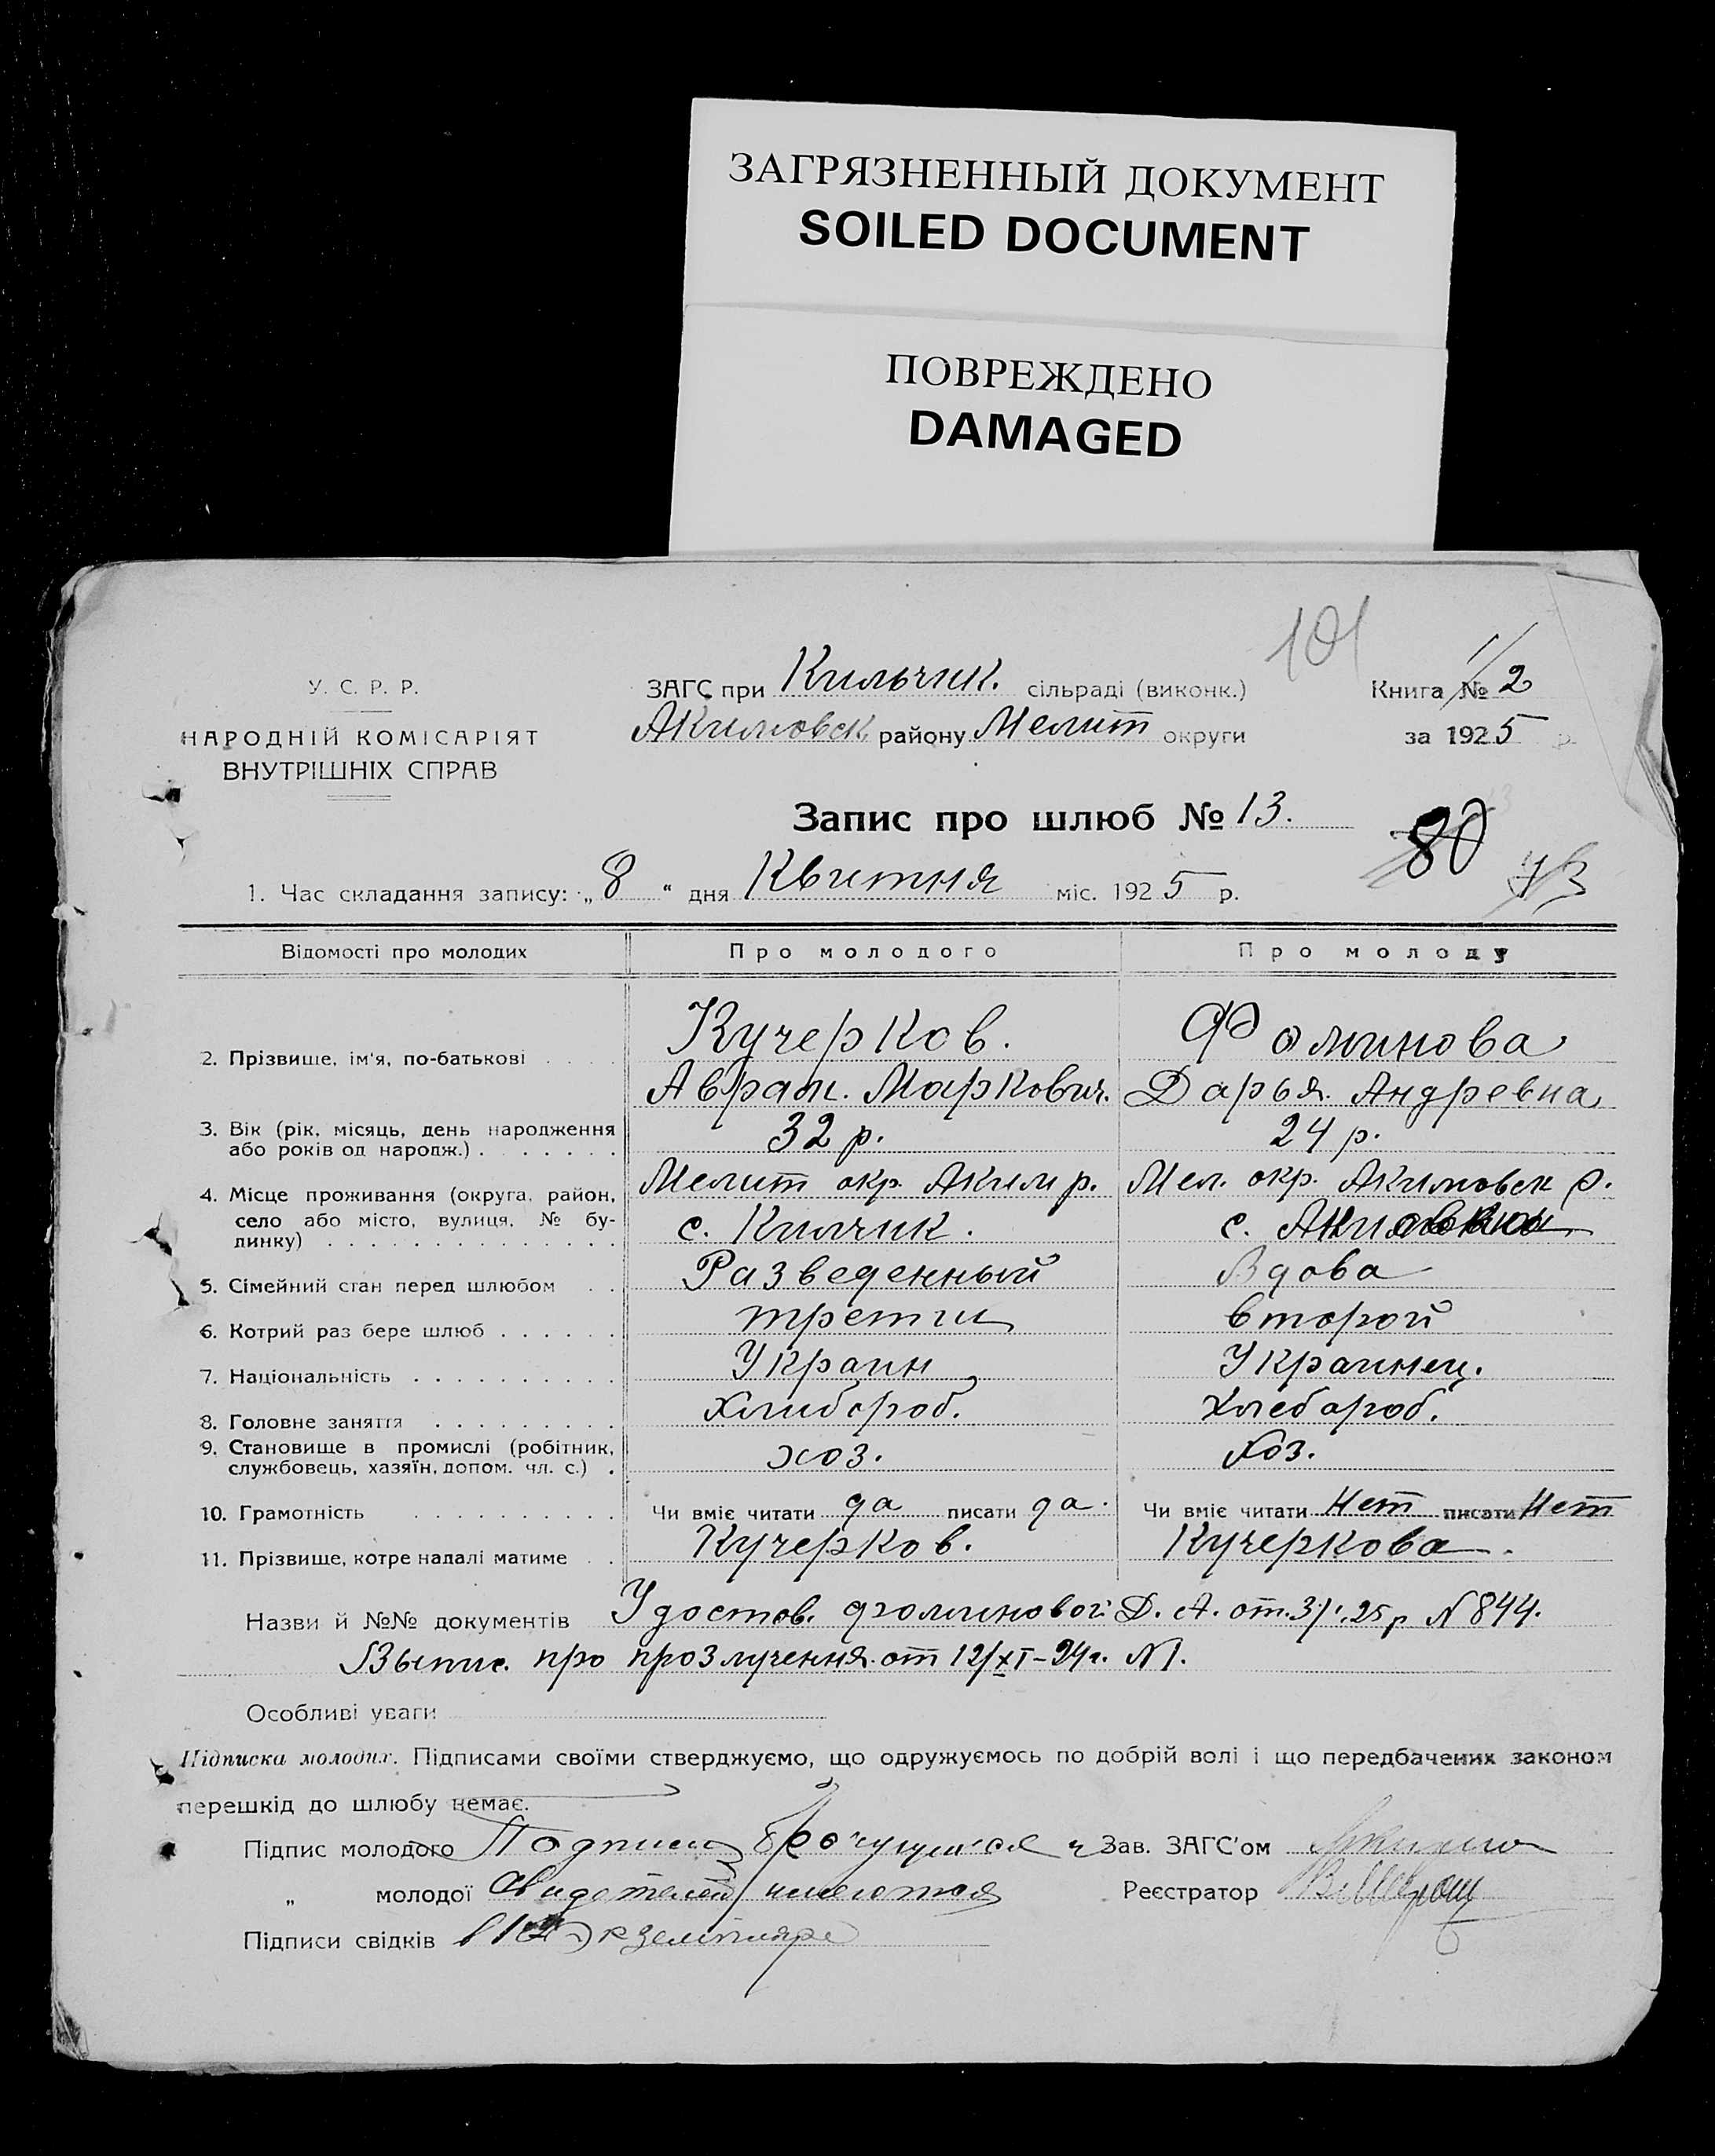 ЗАГРЯЗНЕННЫЙ ДОКУМЕНТ
SOILED DOCUMENT
ПОВРЕЖДЕНО
DAMAGED
101
У. С. Р. Р.
НАРОДНІЙ КОМІСАРІЯТ
ВНУТРІШНІХ СПРАВ
ЗАГС при Кильчик. сільраді (виконк.)
Акимовск району Мелит округи
Книга № 2
за 1925 р.
Запис про шлюб № 13.
80
73
1. Час складання запису: „8“ дня Квитня міс. 1925 р.
Відомості про молодих Про молодого Про молоду
2. Прізвище, ім'я, по-батькові
Кучерков. Фоминова
Аврам. Маркович. Дарья Андревна
3. Вік (рік, місяць, день народження або років од народж.) 32 р. 24 р.
4. Місце проживання (округа, район, село або місто, вулиця, № будинку)
Мелит окр. Аким р. Мел. окр. Акимовск р.
с. Килчик. с. Акимовка
5. Сімейний стан перед шлюбом Разведенный Вдова
6. Котрий раз бере шлюб трети второй
7. Національність Украин Украинец.
8. Головне заняття Хлибороб. Хлебороб.
9. Становище в промислі (робітник, службовець, хазяїн, допом. чл. с.) хоз. хоз.
10. Грамотність Чи вміє читати да писати да. Чи вміє читати Нет писати Нет
11. Прізвище, котре надалі матиме Кучерков. Кучеркова
Назви й №№ документів Удостов. Фоминовой Д. А. от 25 р N 844.
Выпис. про прозлучення от 12/XI-24г. N1.
Особливі уваги
Підписка молодих. Підписами своїми стверджуємо, що одружуємось по добрій волі і що передбачених законом
перешкід до шлюбу немає.
Підпис молодого Подписи Зав. ЗАГС'ом
„ молодої свидетелей имеются Реєстратор
Підписи свідків экземпляре